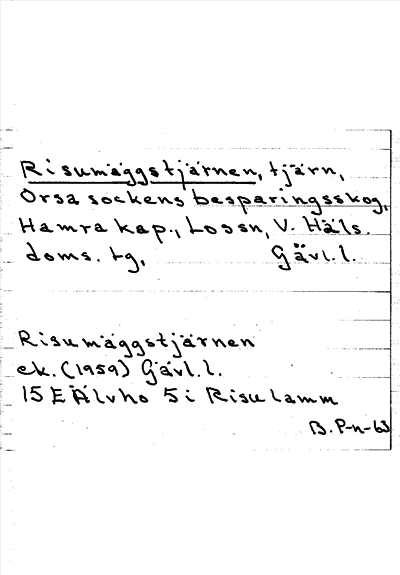 Risumäggstjärnen, tjärn,
Orsa sockens besparingsskog,
Hamra kap., Lossn, V. Häls.
doms. tg, Gävl. l.
Risumäggstjärnen
ek. (1959) Gävl. l.
15 E Älvho 5 i Risulamm
B. P-n-63